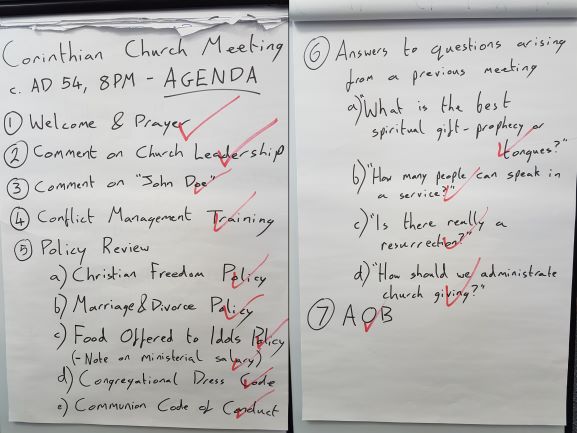 Corinthian Church Meeting
c. AD 54, 8PM - AGENDA
① Welcome & Prayer
② Comment on Church Leadership
③ Comment on "John Doe"
④ Conflict Management Training
⑤ Policy Review
a) Christian Freedom Policy
b) Marriage & Divorce Policy
c) Food Offered to Idols Policy
(-Note on ministerial salary)
d) Congregational Dress Code
e) Communion Code of Conduct
⑥ Answers to questions arising
from a previous meeting
a) "What is the best
spiritual gift - prophecy or
tongues?"
b) "How many people can speak in
a service?"
c) "Is there really a
resurrection?"
d) "How should we administrate
church giving?"
⑦ AOB